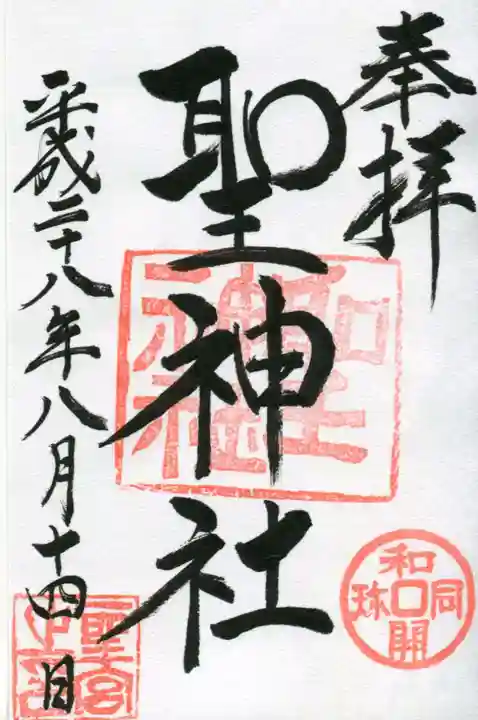 奉拝
聖神社
平成二十八年八月十四日
聖神社
和同開珎